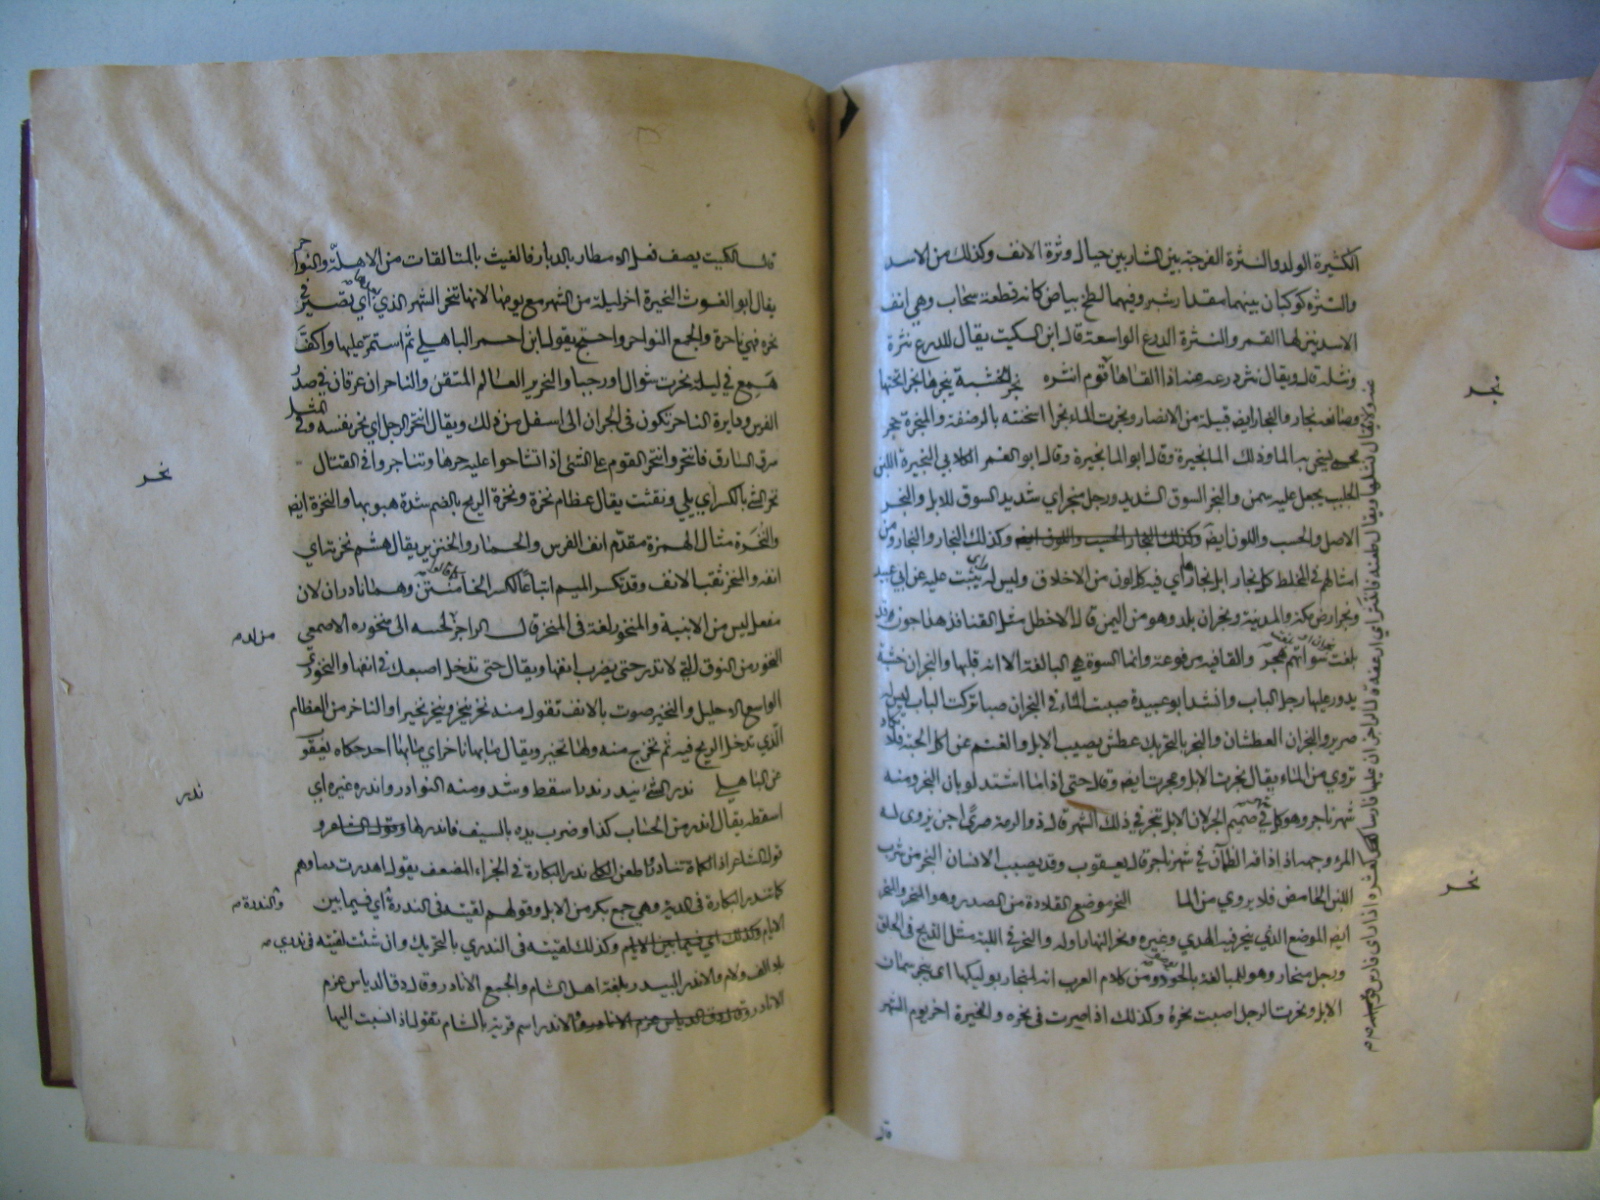 الكثيرة الولد والنثرة الفرجة بين الشاربين حيال وترة الانف وكذلك من الاسد
والنثره كوكبان بينهما مقدار شبر وفيهما لطخ بياض كانه قطعة سحاب وهي انف
الاسد ينزلها القمر والنثرة الدرع الواسعة قال ابن السكيت يقال للدرع نثرة
ونثلة قال ويقال نثر درعه عنه اذا القاها ولا يقال نثلها ويقال طعنه فانثره اي ارعفه قال الراجز ان عليها فارسا كعشره اذا راى فارس قوم انثره نجر الخشبة ينجرها نجرا نحتها
نجر
وصانعه نجار والنجار ايضا قبيلة من الانصار ونجرت الماء نجرا اسخنته بالرضفة والمنجرة حجر
محمى يسخن به الما وذلك الما نجيرة وقال ابو الغمر الكلابي النجيرة اللبن
الحليب يجعل عليه سمن والنجر السوق الشديد ورجل منجر اي شديد السوق للابل والنجر
الاصل والحسب واللون ايضا وكذلك النجار والنجار ومن
امثالهم في المخلط كل نجار ابل نجارها اي فيه كل لون من الاخلاق وليس له راي يثبت عليه عن ابي عبيد
ونجر ارض مكة والمدينة ونجران بلد وهو من اليمن قال الاخطل مثل القنافذ هداجون قد
بلغت نجران او بلغت سوآتهم هجر والقافيه مرفوعة وانما السوءة هي البالغة الا انه قلبها والنجران خشبة
يدور عليها رجل الباب وانشد ابو عبيدة صببت الماء في النجران صبا تركت الباب ليس له
صرير والنجران العطشان والنجر بالتحريك عطش يصيب الابل والغنم عن اكل الحبة فلا تكاد
تروي من الماء يقال نجرت الابل ومجرت ايضا وقال حتى اذا ما اشتد لوبان النجر ومنه
شهر ناجر وهو كل شهر في صميم الحر لان الابل تنجر في ذلك الشهر قال ذو الرمة صرى اجن يزوى له
المرء وجهه اذا ذاقه الظمآن في شهر ناجر قال يعقوب وقد يصيب الانسان النجر من شرب
اللبن الحامض فلا يروي من الما النحر موضع القلادة من الصدر وهو المنحر والمنحر
نحر
ايضا الموضع الذي ينحر فيه الهدي وغيره ونحر النهار اوله والنحر في اللبة مثل الذبح في الحلق
ورجل منحار وهو للمبالغة يوصف بالجود ومن كلام العرب انه لمنحار بوائكها اي ينحر سمان
الابل ونحرت الرجل اصبت نحرة وكذلك اذا صرت في نحره والنحيرة اخر يوم الشهر
قال الكميت يصف فعل الامطار بالديار فالغيث بالمتالقات من الاهلة والنواحر
يقال ابو الغوث النحيرة اخر ليلة من الشهر مع يومها لانها تنحر الشهر الذي بعدها اي تصير في
نحره فهي ناحرة والجمع النواحر واحتج بقول ابن احمر الباهلي ثم استمر عليها واكف
همع في ليلة نحرت شوال او رجبا والنحرير العالم المتقن والناحران عرقان في صدر
الفرس ودايرة الناحر تكون في الجران الى اسفل من ذلك ويقال انتحر الرجل اي نحر نفسه وفي المثل
سرق السارق فانتحر وانتحر القوم على الشي اذا تشاحوا عليه حرصا وتناحروا في القتال
نخر
نخر الشي بالكسر اي بلي وتفتت يقال عظام نخرة ونخرة الريح بالضم شدة هبوبها والنخرة ايضا
والنخرة مثال الهمزة مقدم انف الفرس والحمار والخنزير يقال هشم نخرته اي
انفه والمنخر ثقب الانف وقد تكسر الميم اتباعا لكسر الخا كما قالوا منتن وهما نادران لان
مفعل ليس من الابنية والمنخور لغة في المنخر قال الراجز من لد لحييه الى منخوره الاصمعي
النخور من النوق التي لا تدر حتى يضرب انفها ويقال حتى تدخل اصبعك في انفها والنخوري
الواسع الاحليل والنخير صوت بالانف تقول منه نخر ينخر وينخر نخيرا والناخر من العظام
الذي تدخل الريح فيه ثم تخرج منه ولها نخير ويقال ما بها ناخر اي ما بها احد حكاه يعقوب
عن الباهلي ندر الشي يندر ندرا سقط وشذ ومنه النوادر واندره غيره اي
ندر
اسقطه يقال اندر من الحساب كذا وضرب يده بالسيف فاندرها
قول الشاعر اذا الكماة تنادوا طعن الكلى ندر البكارة في الجزاء المضعف يقول اهدرت دماوهم
كما تندر البكارة في الدية وهي جمع بكر من الابل وقولهم لقيته في الندرة والندرة اي فيما بين
الايام وكذلك لقيته في الندري بالتحريك وان شئت لقيته في ندري
بلا الف ولام والاندر البيدر بلغة اهل الشام والجمع الانادر وقال دق الدياس عرم
الانادر والاندر اسم قرية بالشام تقول اذا نسبت اليها